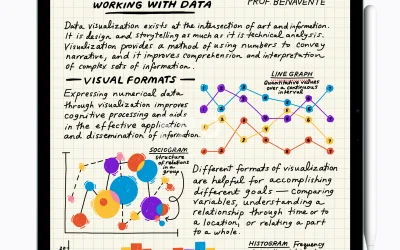 WORKING WITH DATA
PROF. BENAVENTE
Data visualization exists at the intersection of art and information.
It is design and storytelling as much as it is technical analysis.
Visualization provides a method of using numbers to convey
narrative, and it improves comprehension and interpretation
of complex sets of information.
— VISUAL FORMATS —
Expressing numerical data
through visualization improves
cognitive processing and aids
in the effective application
and dissemination of information.
LINE GRAPH
Quantitative values
over a continuous
interval
SOCIOGRAM
structure
of relations
in a
group
Different formats of visualization
are helpful for accomplishing
different goals — comparing
variables, understanding a
relationship through time or to
a location, or relating a part
to a whole.
HISTOGRAM Frequency